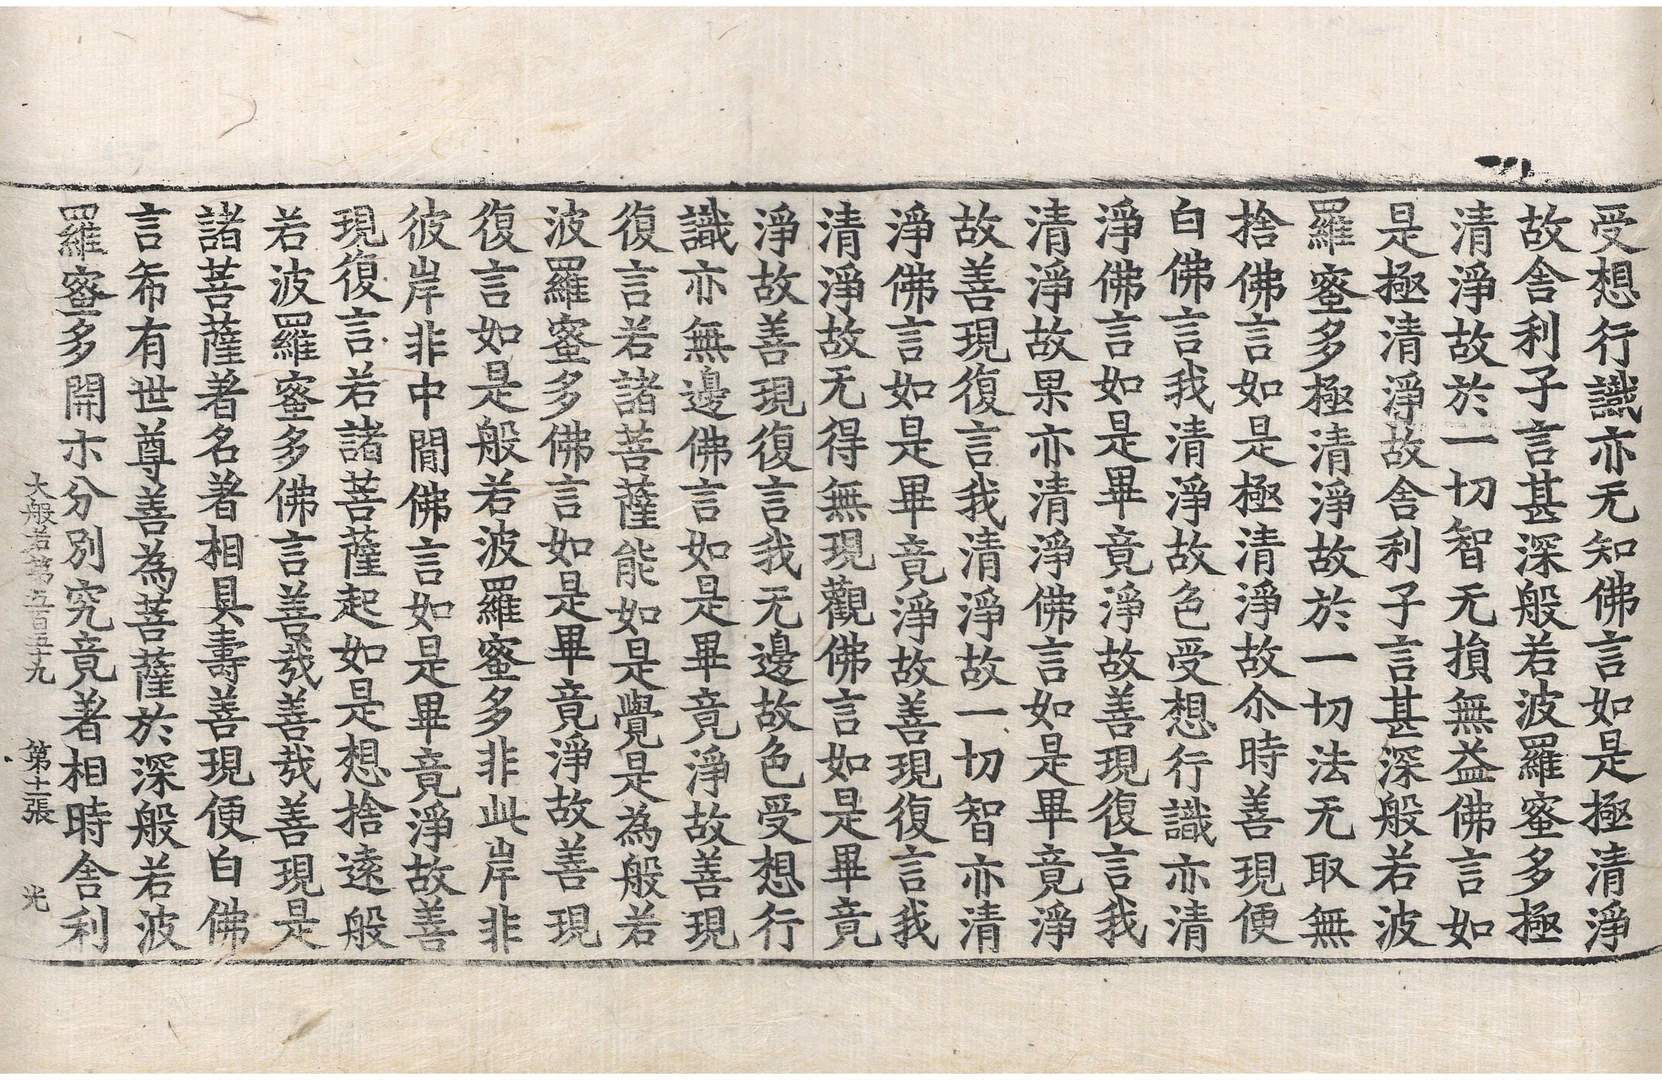 受想行識亦无知佛言如是極清淨
故舍利子言甚深般若波羅蜜多極
清淨故於一切智无損無益佛言如
是極清淨故舍利子言甚深般若波
羅蜜多極清淨故於一切法无取無
捨佛言如是極清淨故尒時善現便
白佛言我清淨故色受想行識亦清
淨佛言如是畢竟淨故善現復言我
清淨故果亦清淨佛言如是畢竟淨
故善現復言我清淨故一切智亦清
淨佛言如是畢竟淨故善現復言我
清淨故无得無現觀佛言如是畢竟
淨故善現復言我无邊故色受想行
識亦無邊佛言如是畢竟淨故善現
復言若諸菩薩能如是覺是為般若
波羅蜜多佛言如是畢竟淨故善現
復言如是般若波羅蜜多非此岸非
彼岸非中閒佛言如是畢竟淨故善
現復言若諸菩薩起如是想捨遠般
若波羅蜜多佛言善哉善哉善現是
諸菩薩著名著相具壽善現便白佛
言希有世尊善為菩薩於深般若波
羅蜜多開示分別究竟著相時舍利
大般若第五百五十九 第十二張 光